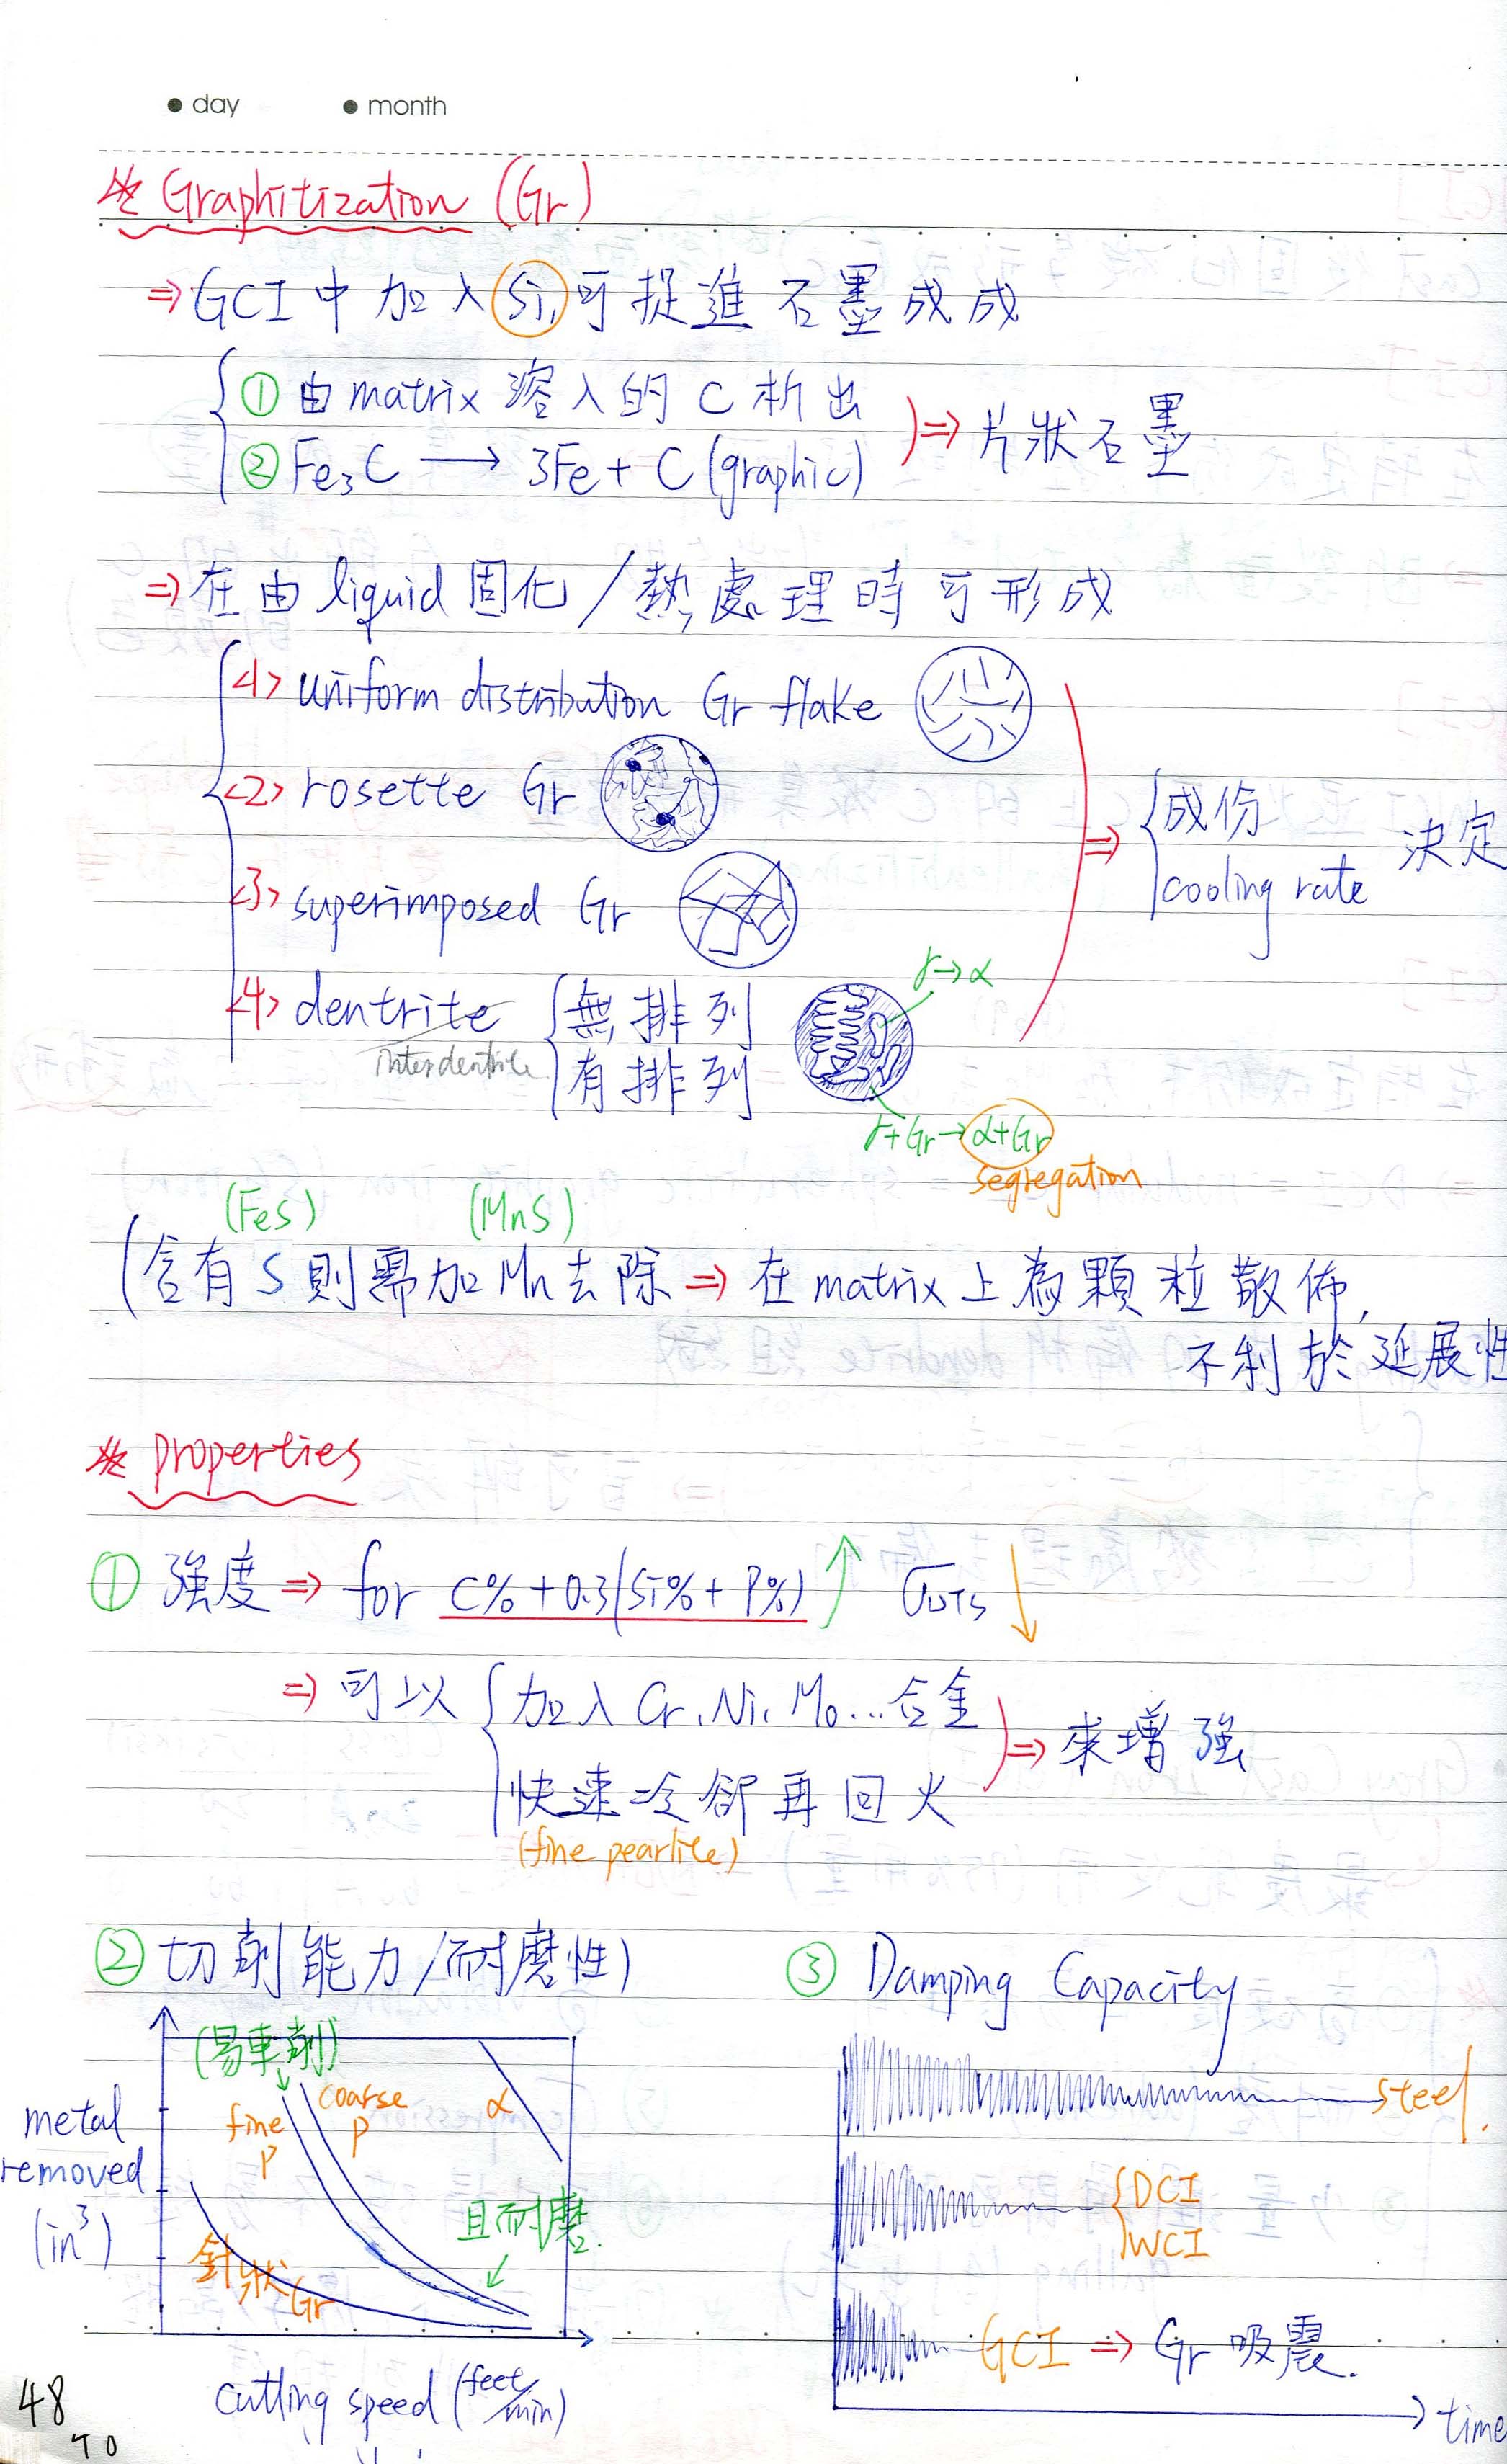 ● day ● month
※ Graphitization (Gr)
⇒ GCI 中加入 Si, 可捉進石墨成成
① 由 matrix 溶入的 C 析出
② Fe₃C → 3Fe + C (graphic)
⇒ 片狀石墨
⇒ 在由 liquid 固化/熱處理時可形成
<1> uniform distribution Gr flake
<2> rosette Gr
<3> superimposed Gr
<4> dentrite
interdentrite
無排列
有排列
⇒ 成份
cooling rate
決定
γ→α
γ+Gr→α+Gr
segregation
(FeS) (MnS)
(含有 S 則需加 Mn 去除 ⇒ 在 matrix 上為顆粒散佈,
不利於延展性
※ Properties
① 強度 ⇒ for C% + 0.3(Si% + P%) ↑ σUTS ↓
⇒ 可以
加入 Cr, Ni, Mo... 合金
快速冷卻再回火
(fine pearlite)
⇒ 來增強
② 切削能力/耐磨性)
(易車削)
coarse P
fine P
α
且耐磨.
針狀 Gr
metal
removed
(in³)
cutting speed (feet/min)
③ Damping Capacity
steel.
DCI
WCI
GCI ⇒ Gr 吸震.
time
48